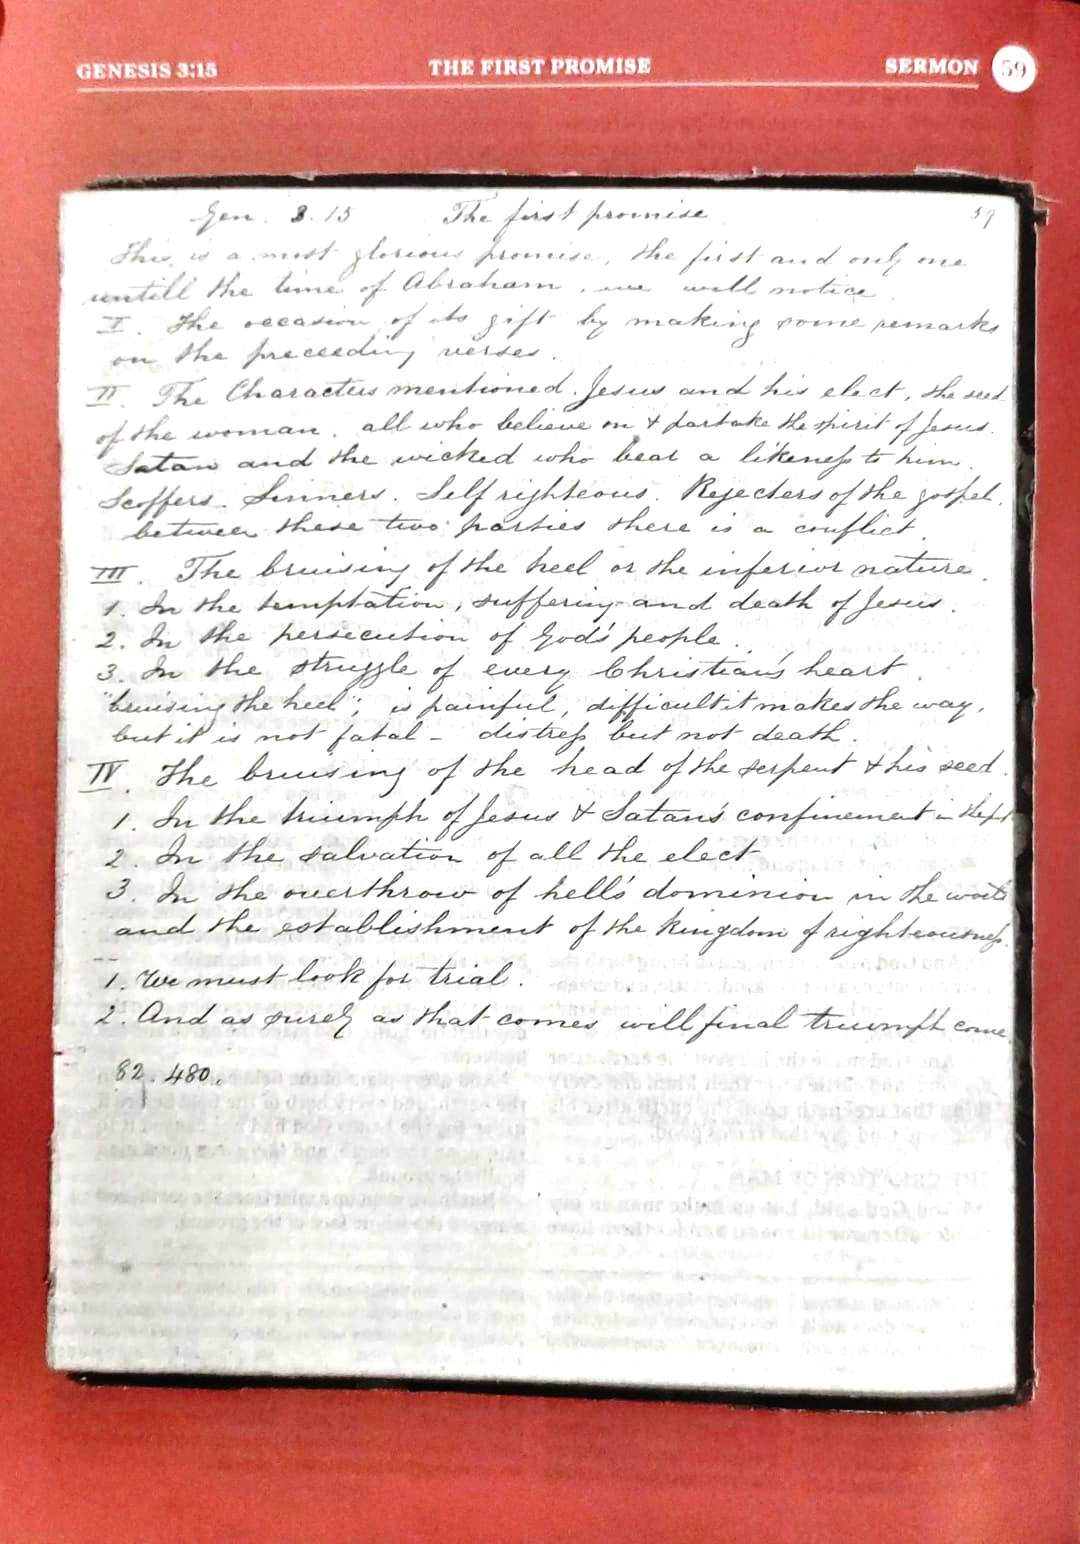 GENESIS 3:15 THE FIRST PROMISE SERMON 59
Gen. 3.15 The first promise 59
This is a most glorious promise, the first and only one
untill the time of Abraham. we will notice
I. The occasion of its gift by making some remarks
on the preceeding verses.
II. The Characters mentioned. Jesus and his elect, the seed
of the woman. all who believe on & partake the spirit of Jesus.
Satan and the wicked who bear a likeness to him.
Scoffers. Sinners. Self righteous. Rejecters of the gospel.
between these two parties there is a conflict.
III. The bruising of the heel or the inferior nature.
1. In the temptation, suffering and death of Jesus.
2. In the persecution of God's people.
3. In the struggle of every Christian's heart.
"bruising the heel"; is painful, difficult it makes the way,
but it is not fatal - distress but not death.
IV. The bruising of the head of the serpent & his seed.
1. In the triumph of Jesus & Satan's confinement in the pit
2. In the salvation of all the elect
3. In the overthrow of hell's dominion in the world
and the establishment of the kingdom of righteousness.
1. We must look for trial.
2. And as surely as that comes will final triumph come.
82. 480.